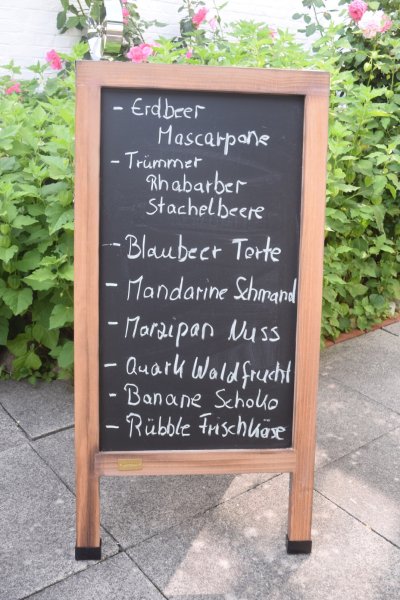 - Erdbeer
Mascarpone
- Trümmer
Rhabarber
Stachelbeere
- Blaubeer Torte
- Mandarine Schmand
- Marzipan Nuss
- Quark Waldfrucht
- Banane Schoko
- Rübble Frischkäse